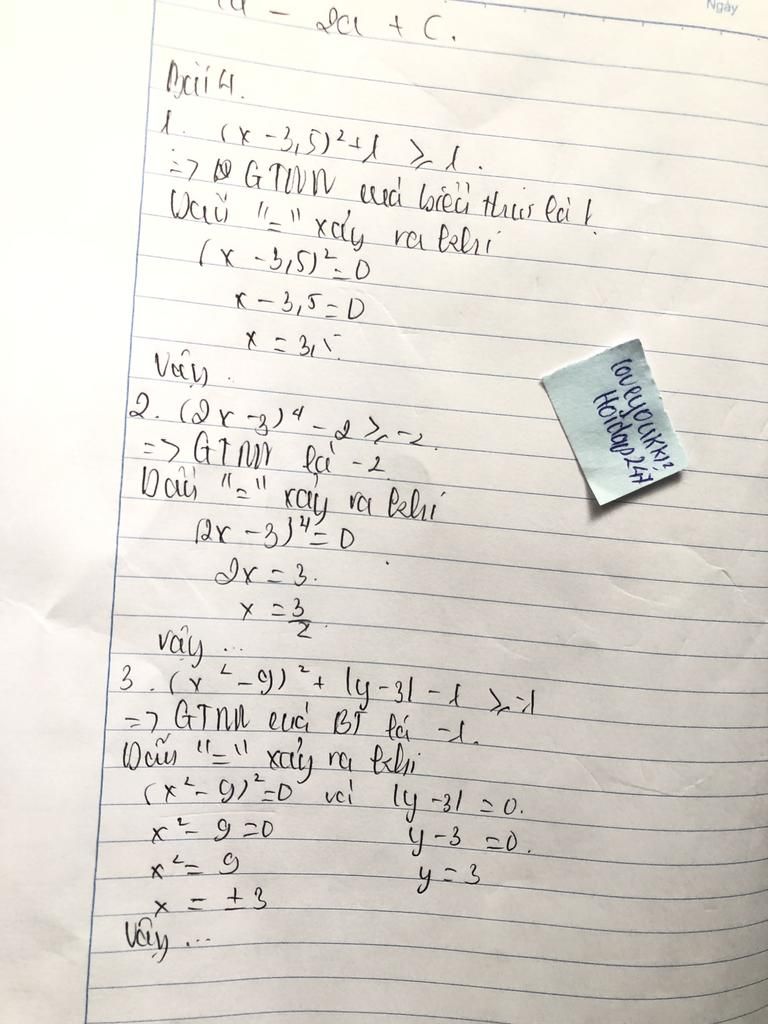 Ngày
- 2a + C.
Bài 4.
1. (x - 3,5)² + 1 ≥ 1.
=> GTNN của biểu thức là 1.
Dấu "=" xảy ra khi
(x - 3,5)² = 0
x - 3,5 = 0
x = 3,5
Vậy.
2. (2x - 3)⁴ - 2 ≥ -2.
=> GTNN là -2
Dấu "=" xảy ra khi
(2x - 3)⁴ = 0
2x = 3.
x = 3/2.
Vậy ...
3. (x² - 9)² + |y - 3| - 1 ≥ -1
=> GTNN của BT là -1.
Dấu "=" xảy ra khi
(x² - 9)² = 0 và |y - 3| = 0.
x² - 9 = 0 y - 3 = 0.
x² = 9 y = 3
x = ± 3
Vậy ...
loveyoukk12
Hoidap247